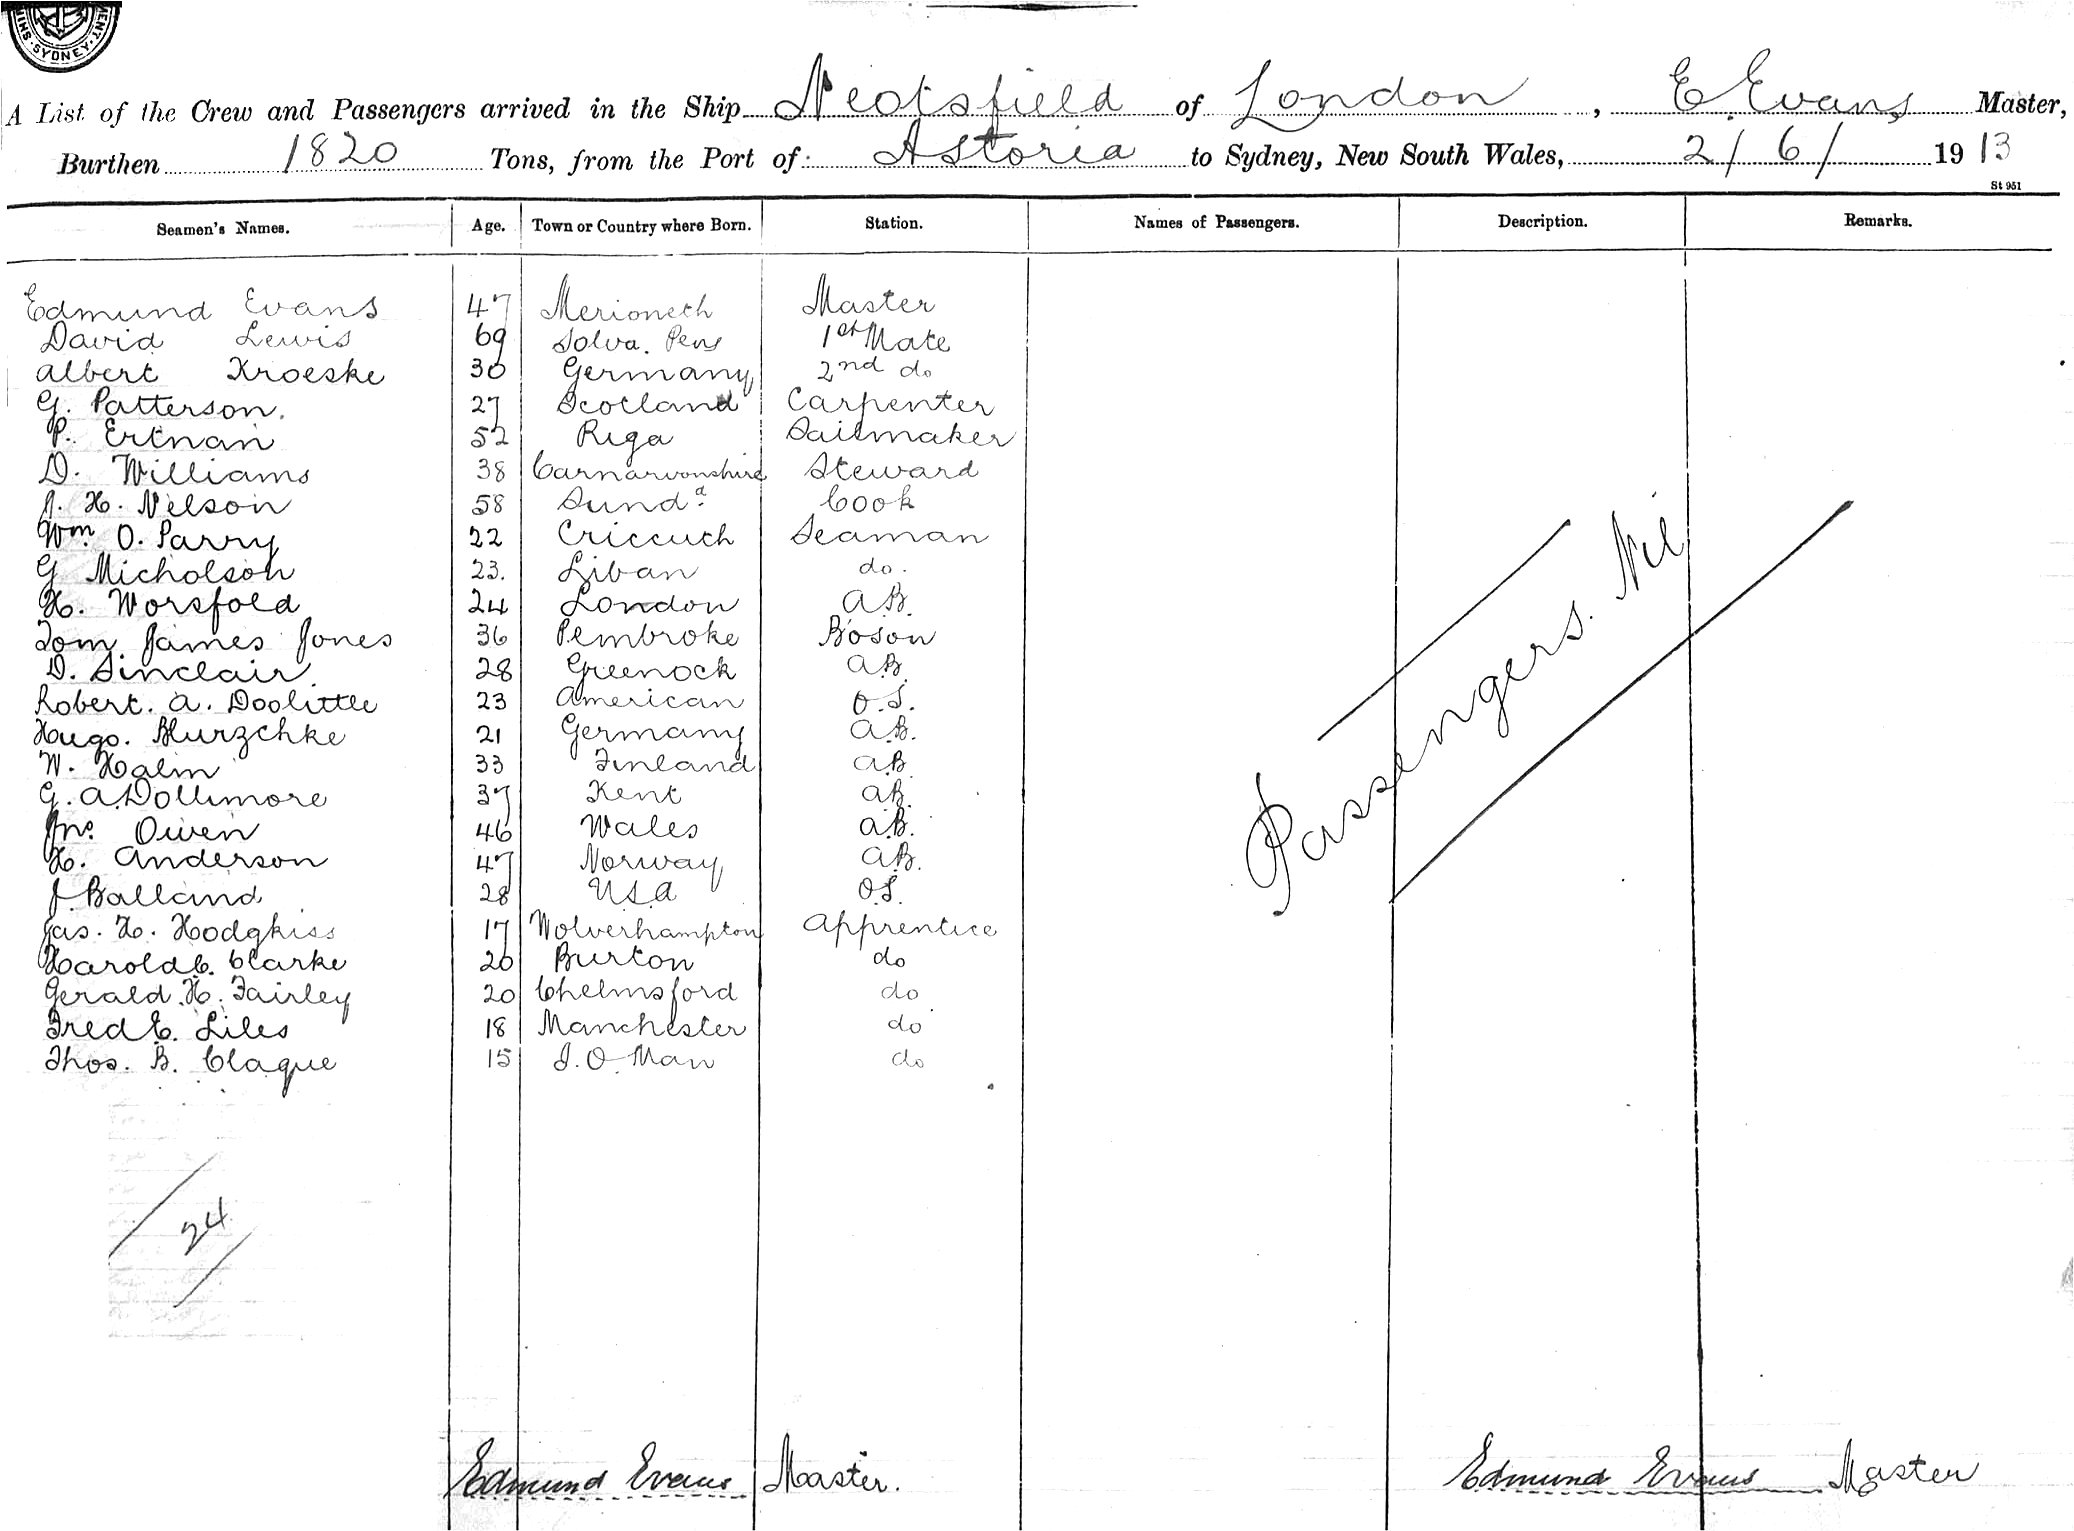 MENT
MINS · SYDNEY ·
A List of the Crew and Passengers arrived in the Ship Neotsfield of London, E. Evans Master,
Burthen 1820 Tons, from the Port of: Astoria to Sydney, New South Wales, 2/6/1913
St 951
Seamen's Names. Age. Town or Country where Born. Station. Names of Passengers. Description. Remarks.
Edmund Evans 47 Merioneth Master
David Lewis 69 Solva. Pem 1st Mate
Albert Kroeske 30 Germany 2nd do
G. Patterson. 27 Scotland Carpenter
P. Ertnan 52 Riga Sailmaker
D. Williams 38 Carnarvonshire Steward
J. H. Nelson 58 Sund.a Cook
Wm. O. Parry 22 Criccuch Seaman
G Micholson 23. Liban do.
H. Worsfold 24 London AB.
Tom James Jones 36 Pembroke Boson
D. Sinclair. 28 Greenock AB.
Robert. A. Doolittle 23 American O.S.
Hugo. Blurzchke 21 Germany AB.
W. Halm 33 Finland AB
G. A. Dollimore 37 Kent AB.
Jno. Owen 46 Wales AB.
H. Anderson 47 Norway AB.
J Balland 28 USA OS.
Jas. H. Hodgkiss 17 Wolverhampton Apprentice
Harold C. Clarke 20 Burton do
Gerald. H. Fairley 20 Chelmsford do
Fred E. Liles 18 Manchester do
Thos. B. Clague 15 I. O. Man do
Passengers. Nil
24
Edmund Evans Master.
Edmund Evans Master